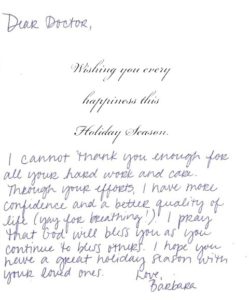 Dear Doctor,
Wishing you every
happiness this
Holiday Season.
I cannot thank you enough for
all your hard work and care.
Through your efforts, I have more
confidence and a better quality of
life (yay for breathing!) I pray
that God will bless you as you
continue to bless others. I hope you
have a great holiday season with
your loved ones.
Love,
Barbara